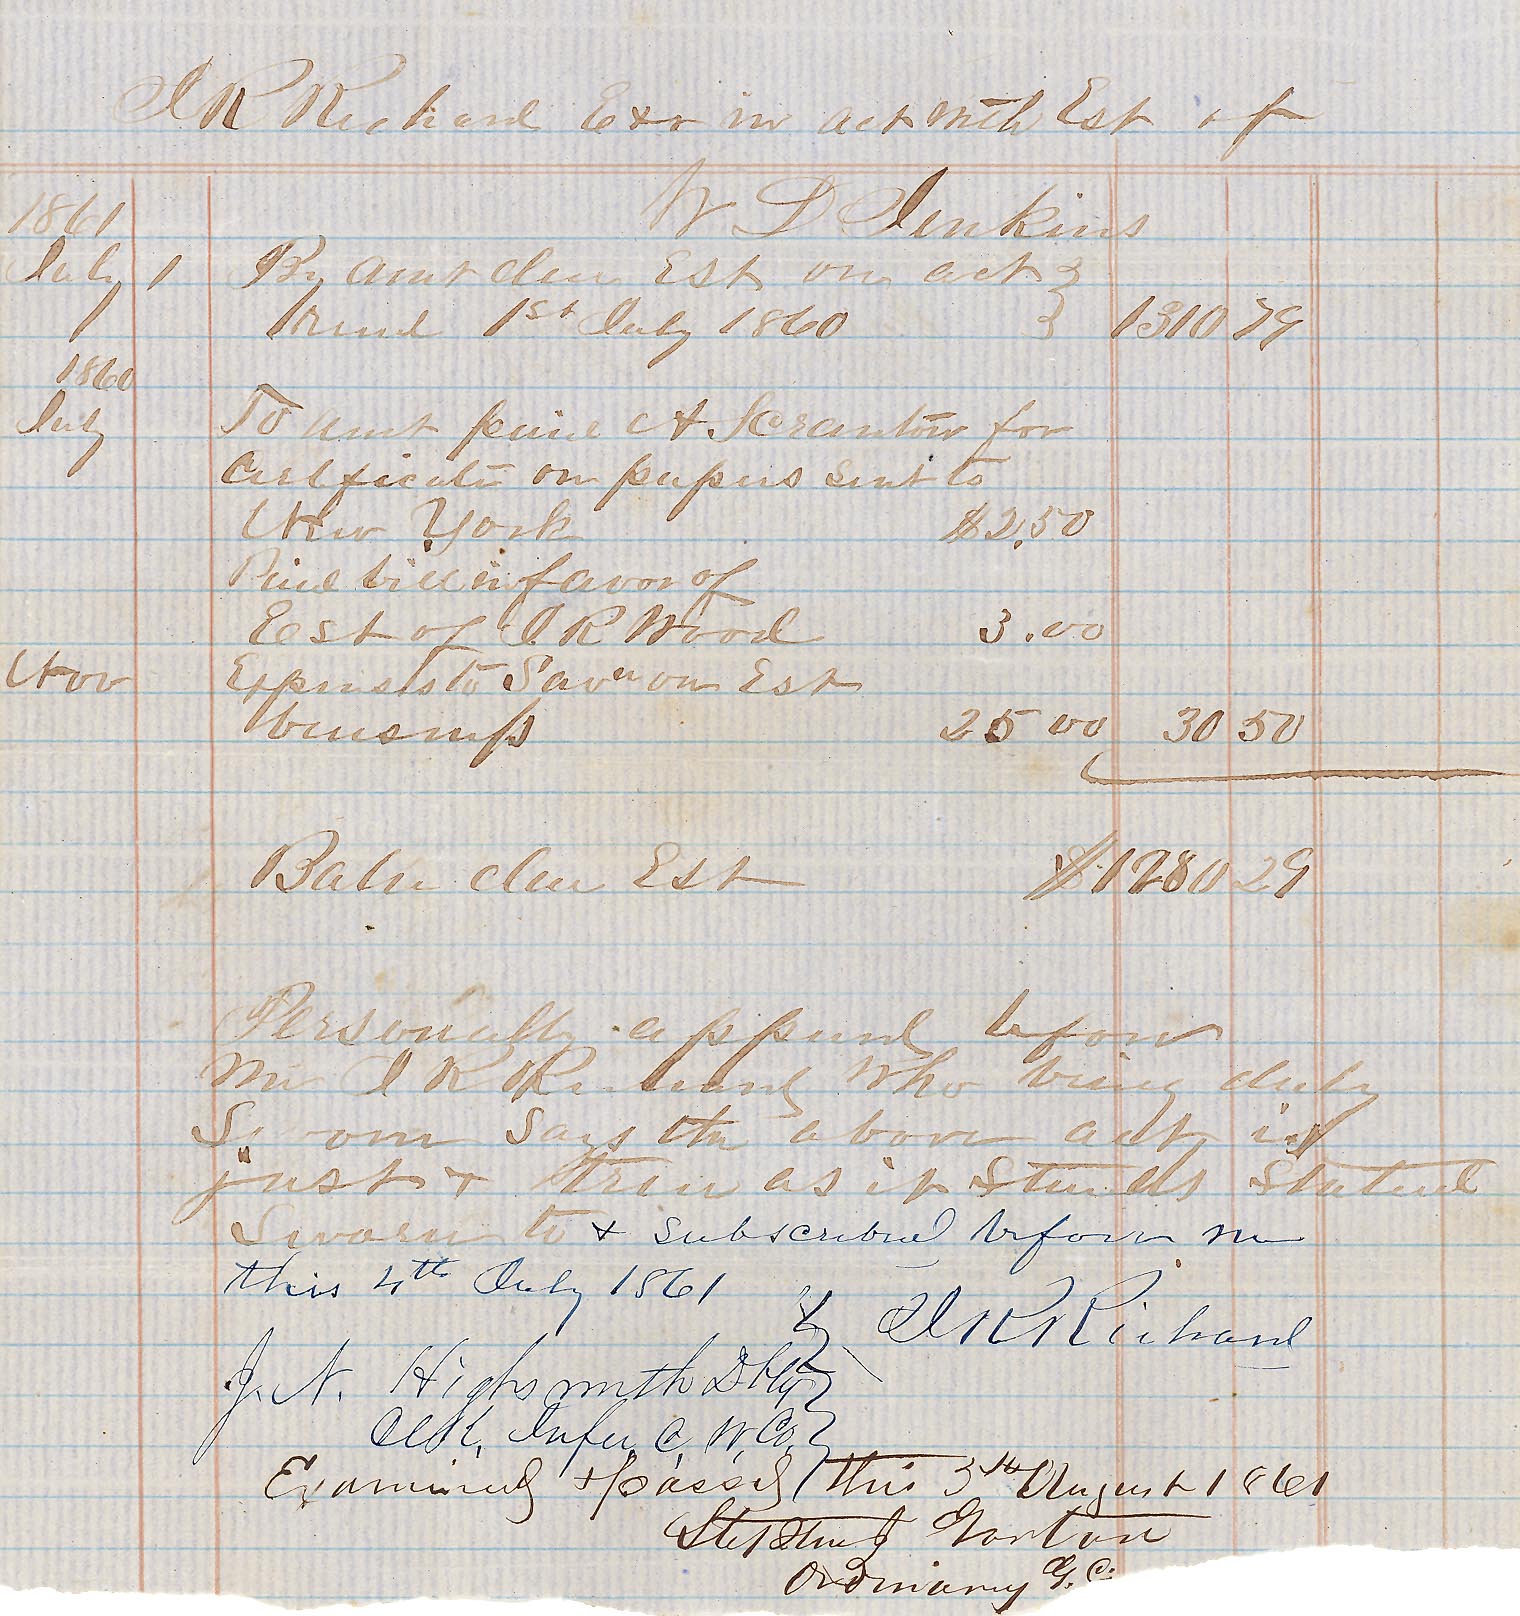 I R Richard Exr in act with Est of
W D Jenkins
1861
July 1 By amt due Est on act
1st July 1860 1310 79
1860
July To amt paid A. Scranton for
Certificate on papers sent to
New York $2.50
Paid bill in favor of
Est of I R Wood 3.00
Nov Expenses to Savh on Est
business 25 00 30 50
Balce due Est $1280 29
Personally appeard before
me I R Richard who being duly
Sworn Says the above act is
just & true as it Stands Stated
Sworn to & subscribed before me
this 4th July 1861
I R Richard
J. N. Highsmith Dpty
Clk. Infer. C. W. Co.
Examined & passed this 5th August 1861
Stephen J Gorton
Ordinary G. C.